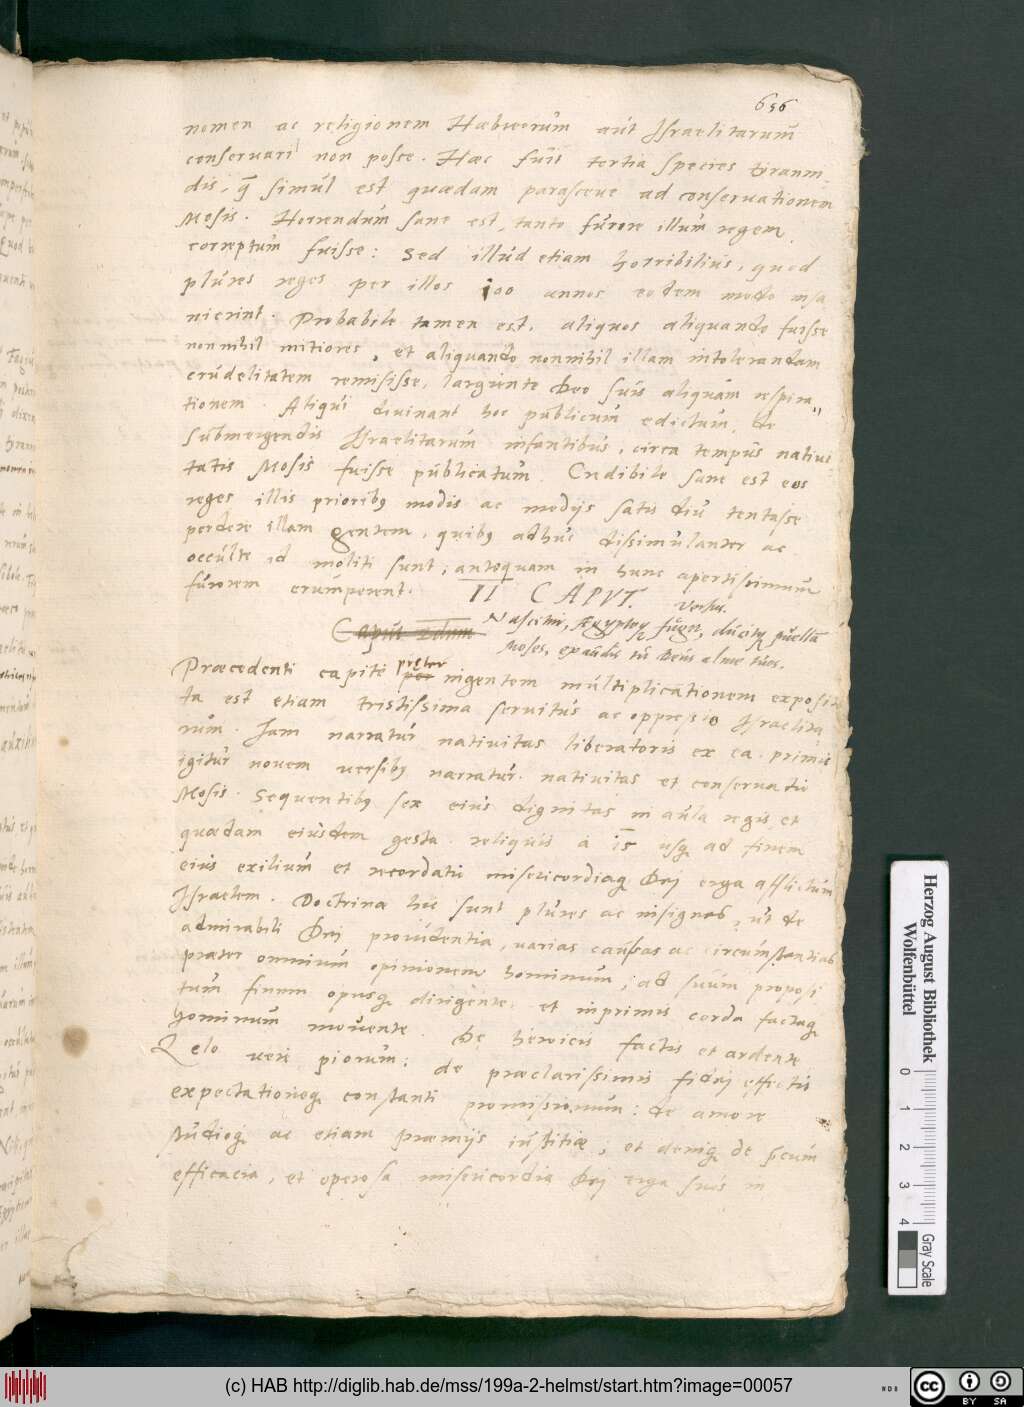 656
nomen ac religionem Hæbreorum aut Israelitarum
conservari non posse. Hæc fuit tertia species tiranni
dis, q̃ simul est quædam parasceve ad conservationem
Mosis. Horrendum sane est, tanto furore illum regem
correptum fuisse: Sed illud etiam horribilius, quod
plures reges per illos 100 annos eodem modo insa
nierint. Probabile tamen est, aliquos aliquando fuisse
nonnihil mitiores, et aliquando nonnihil illam intolerandam
crudelitatem remisisse, largiente Deo suis aliquam respira„
tionem. Aliqui divinant hoc publicum edictum, de
submergendis Israelitarum infantibus, circa tempus nativi
tatis Mosis fuisse publicatum. Credibile sane est eos
reges illis prioribꝰ modis ac medijs satis diu tentasse
perdere illam gentem, quibꝰ adhuc dissimulanter ac
occulte id moliti sunt; antequam in hunc apertissimum
furorem erumperent.
II CAPVT. Versus.
Caput 2dum Nascitur, Ægyptoq̃ fugit, ducitq̃ puellā
Moses, exaudis tu Deus alme tuos.
Præcedenti capite per præter ingentem multiplicationem exposi
ta est etiam tristissima servitus ac oppressio Israelita
rum. Iam narratur nativitas liberatoris ex ea. primis
igitur novem versibꝰ narratur nativitas et conservatio
Mosis. Sequentibꝰ sex eius dignitas in aula regis et
quædam eiusdem gesta. reliquis à 15 usq̃ ad finem
eius exilium et recordatio misericordiaq̃ Dei erga afflictum
Israelem. Doctrinæ hic sunt plures ac insignes, ut de
admirabili Dei providentia, varias causas ac circumstantias
præter omnium opinionem hominum, ad suum proposi
tum finem opusq̃ dirigente, et inprimis corda factaq̃
hominum movente. De heroicis factis et ardente
Zelo vere piorum: de præclarissimis fidei effectis
expectationeq̃ constanti promissionum: de amore
studioq̃ ac etiam præmijs iustitiæ; et deniq̃ de precum
efficacia, et operosa misericordia Dei erga suos in
Herzog August Bibliothek
Wolfenbüttel
0 1 2 3 4
Gray Scale
(c) HAB http://diglib.hab.de/mss/199a-2-helmst/start.htm?image=00057
cc BY SA